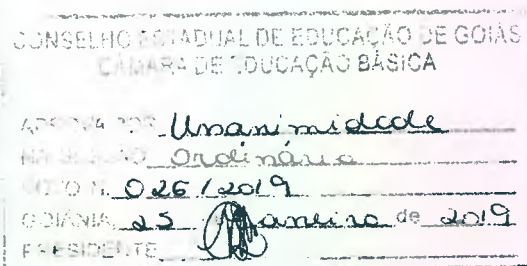 CONSELHO ESTADUAL DE EDUCAÇÃO DE GOIÁS
CÂMARA DE EDUCAÇÃO BÁSICA
Unanimidade
Ordinária
026/2019
GOIÂNIA, 25 Janeiro de 2019
PRESIDENTE